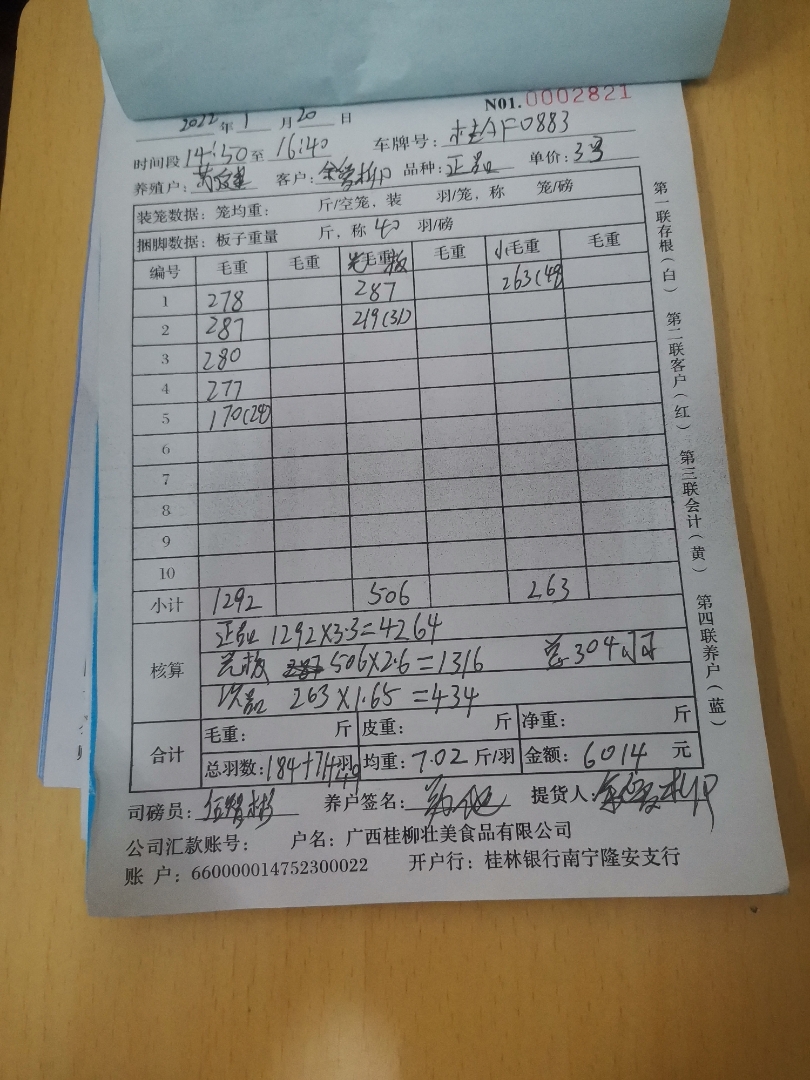 N01.0002821
2022年1月20日
时间段14:50至16:40 车牌号:桂AF0883
养殖户: 客户: 品种:正品 单价:3号
装笼数据:笼均重: 斤/空笼,装 羽/笼,称 笼/磅
捆脚数据:板子重量 斤,称40羽/磅
编号 毛重 毛重 光毛重板 毛重 小毛重 毛重
1 278 287 263(49)
2 287 219(31)
3 280
4 277
5 170(24)
6
7
8
9
10
小计 1292 506 263
核算
正品 1292×3.3=4264
光板 506×2.6=1316 总304只
次品 263×1.65=434
合计
毛重: 斤 皮重: 斤 净重: 斤
总羽数:184+71+49羽 均重:7.02斤/羽 金额:6014元
司磅员: 养户签名: 提货人:
公司汇款账号: 户名:广西桂柳壮美食品有限公司
账 户:660000014752300022 开户行:桂林银行南宁隆安支行
第一联存根(白) 第二联客户(红) 第三联会计(黄) 第四联养户(蓝)